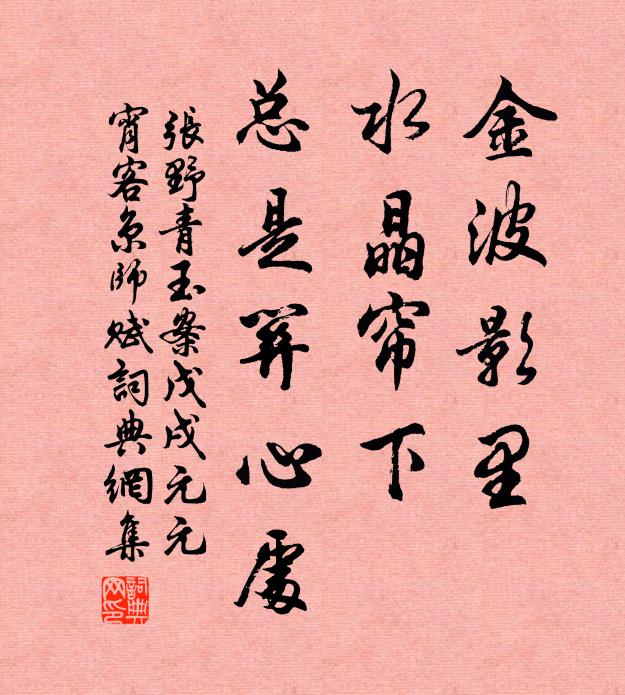 金波影里
水晶帘下
总是關心處
張野青玉案戊戌元元
宵客京師賦詞典網集
詞典
网印